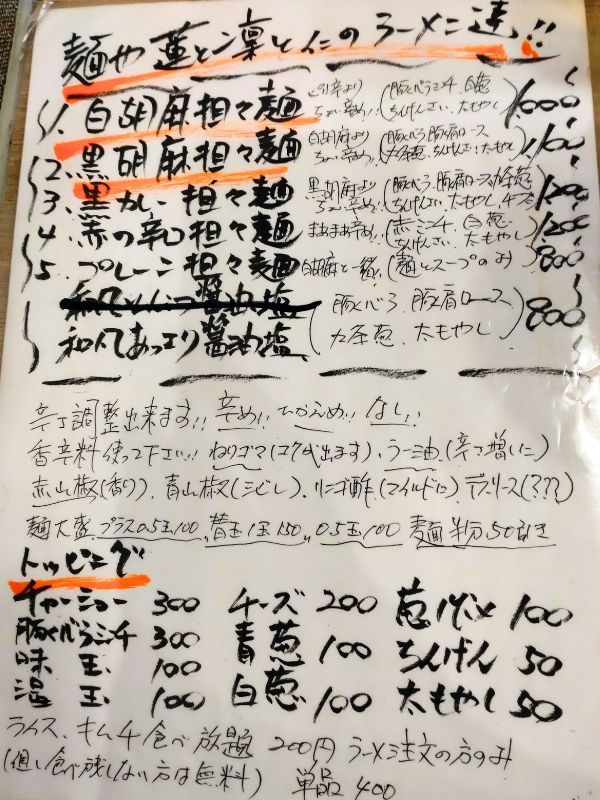 麺や 蓮と凛と仁のラーメン達!!
1. 白胡麻担々麺 ちょい辛め!! (豚バラミンチ、白葱、ちんげんさい、太もやし) 1000
2. 黒胡麻担々麺 白胡麻より ちょい辛め!! (豚バラ、豚肩ロース 九条葱、ちんげんさい、太もやし) 1100
3. 黒カレー担々麺 黒胡麻より ちょい辛め!! (豚バラ、豚肩ロース、九条葱 ちんげんさい、太もやし、チーズ) 1200
4 赤の辛口担々麺 まあまあ辛め!! (赤ミンチ、白葱、ちんげんさい、太もやし) 1200
5. プレーン担々麺 白胡麻と一緒!! (麺とスープのみ) 800
和風あっさり醤油塩 (豚バラ、豚肩ロース 九条葱、太もやし) 800
辛さ調整出来ます!! 辛め!! ひかえめ!! なし!!
香辛料使って下さい!! ねりゴマ(コクが出ます)、ラー油(辛さ増しに)
赤山椒(香り)、青山椒(シビレ)、リンゴ酢(マイルドに) デスソース(???)
麺大盛 プラス0.5玉100、替玉1玉150、0.5玉100 麺半分50引き
トッピング
チャーシュー 300 チーズ 200 葱 100
豚バラミンチ 300 青葱 100 ちんげん 50
味玉 100 白葱 100 太もやし 50
温玉 100
ライス、キムチ食べ放題 200円 ラーメン注文の方のみ
(但し食べ残ししない方は無料) 単品 400